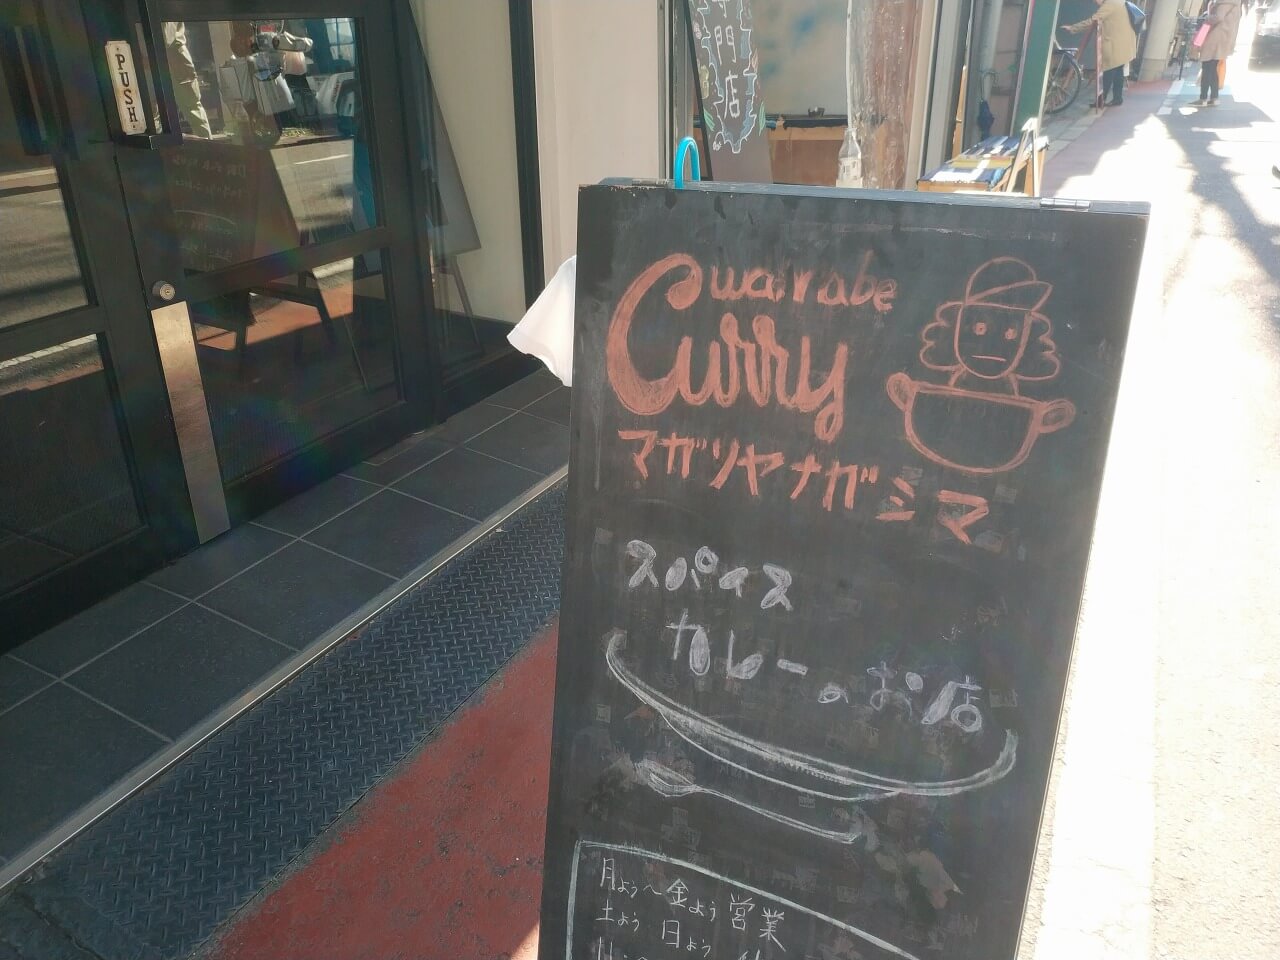 PUSH
門店
warabe
Curry
マガリヤナガシマ
スパイス
カレーのお店
月よう〜金よう営業
土よう 日よう